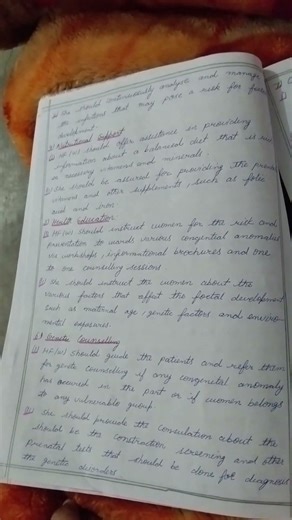 ii) She should continuously analyse and manage
the infections that may pose a risk for foetal
development.
Nutritional Support
i) HF(W) should offer assistance in providing
information about a balanced diet that is rich
in necessary vitamins and minerals
ii) She should be assured for providing the prenatal
vitamins and other supplements, such as folic
acid and iron.
Health Education
i) HF(W) should instruct women for the risk and
prevention towards various congenital anomalies
via workshops, informational brochures and one
to one counselling sessions
ii) She could instruct the women about the
various factors that affect the foetal development
such as maternal age, genetic factors and environ
mental exposures
6) Genetic Counselling
i) HF(W) should guide the patients and refer them
for genetic counselling if any congenital anomaly
has occurred in the past or if women belongs
to any vulnerable group
ii) She should provide the consultation about the
should be the construction screening and other
Prenatal tests that should be done for diagnosis
the genetic disorders